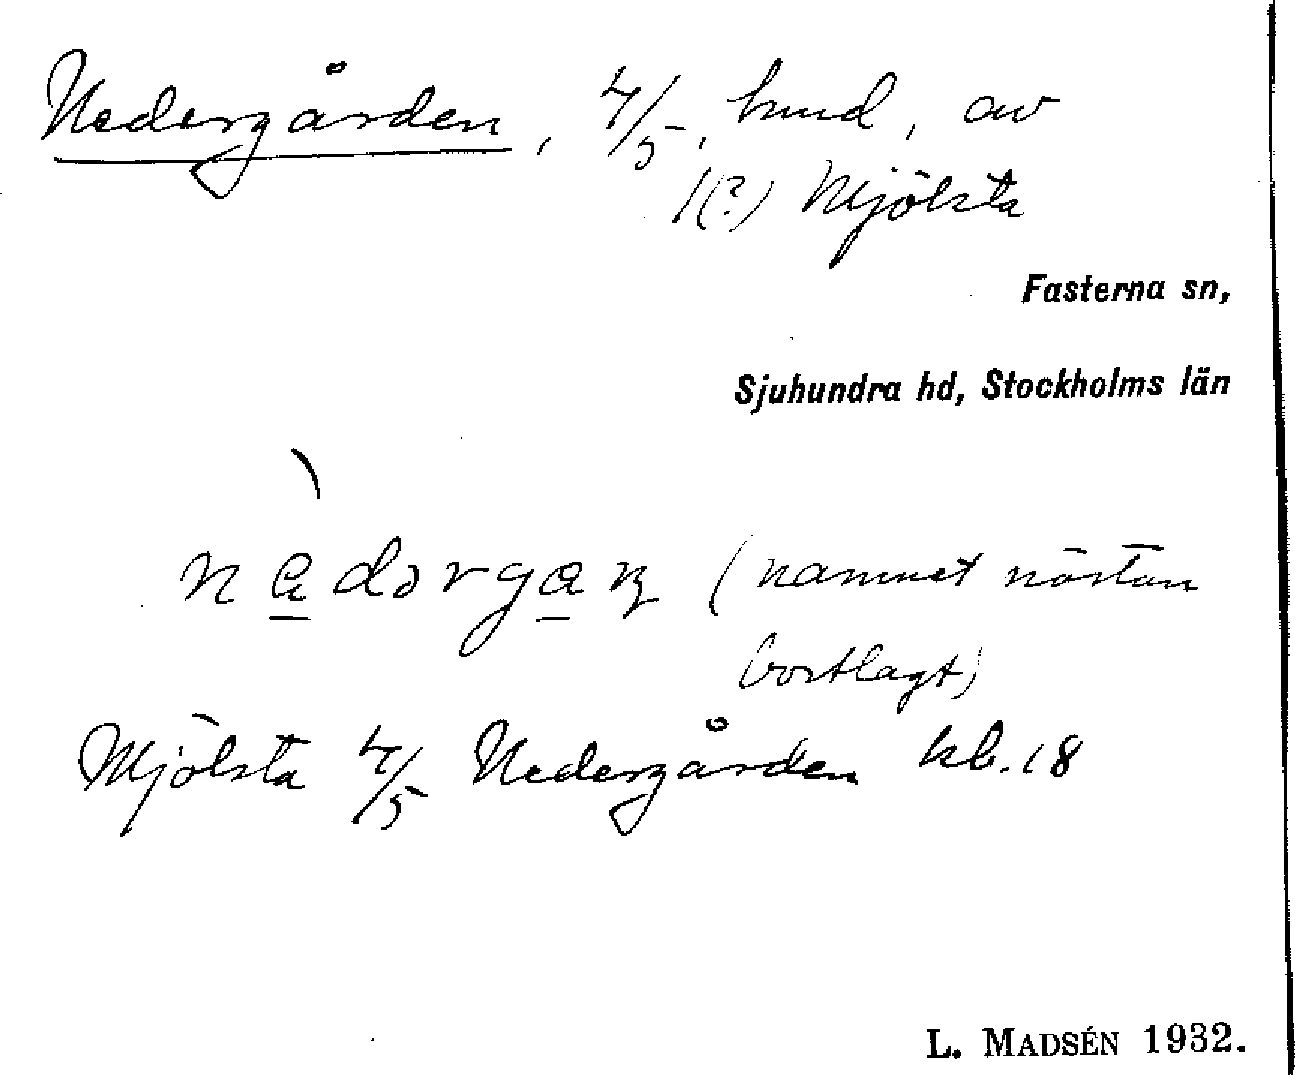 Nedergården, 4/5, hmd, av
1(?) Mjölsta
Fasterna sn,
Sjuhundra hd, Stockholms län
(namnet nästan
bortlagt)
Mjölsta 4/5 Nedergården kb. 18
L. MADSÉN 1932.